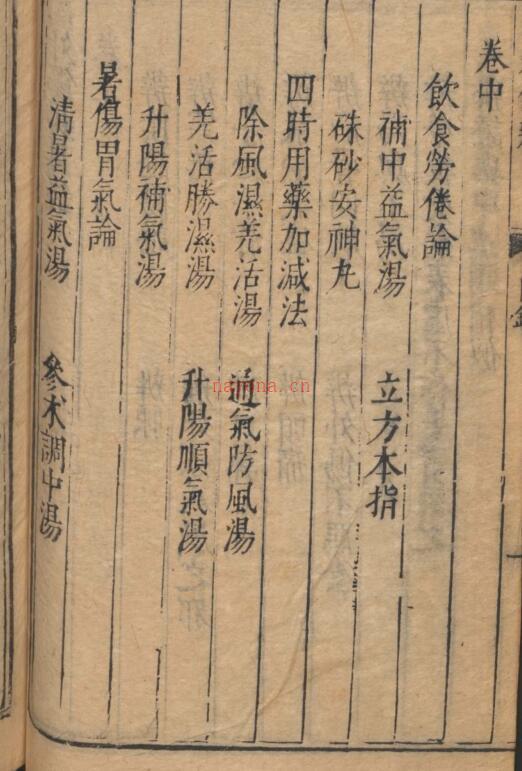 卷中
飲食勞倦論
補中益氣湯 立方本指
硃砂安神丸
四時用藥加减法
除風濕羗活湯 通氣防風湯
羗活勝濕湯 升陽順氣湯
升陽補氣湯
暑傷胃氣論
清暑益氣湯 參朮調中湯
nayona.cn